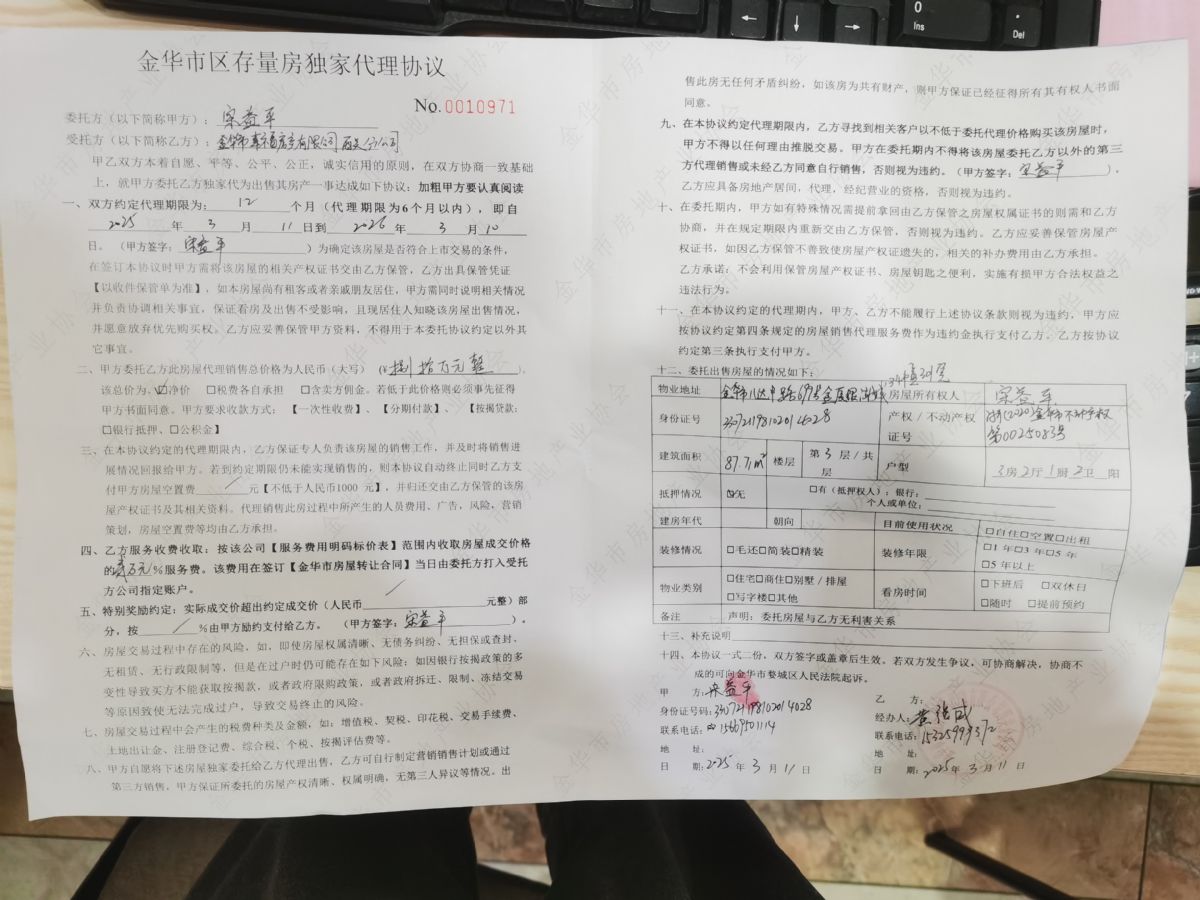 金华市区存量房独家代理协议
No.0010971
委托方（以下简称甲方）：宋益平
受托方（以下简称乙方）：金华市幸福房产有限公司分公司
甲乙双方本着自愿、平等、公平、公正，诚实信用的原则，在双方协商一致基础
上，就甲方委托乙方独家代为出售其房产一事达成如下协议：加粗甲方要认真阅读
一、双方约定代理期限为：12个月（代理期限为6个月以内），即自
2025年3月11日到2026年3月10
日。（甲方签字：宋益平）为确定该房屋是否符合上市交易的条件，
在签订本协议时甲方需将该房屋的相关产权证书交由乙方保管，乙方出具保管凭证
【以收件保管单为准】，如本房屋尚有租客或者亲戚朋友居住，甲方需同时说明相关情况
并负责协调相关事宜，保证看房及出售不受影响，且现居住人知晓该房屋出售情况，
并愿意放弃优先购买权。乙方应妥善保管甲方资料，不得用于本委托协议约定以外其
它事宜。
二、甲方委托乙方此房屋代理销售总价格为人民币（大写）（捌拾万元整），
该总价为，☑净价 □税费各自承担 □含卖方佣金。若低于此价格则必须事先征得
甲方书面同意。甲方要求收款方式：【一次性收费】、【分期付款】、【按揭贷款：
□银行抵押、□公积金】
三、在本协议约定的代理期限内，乙方保证专人负责该房屋的销售工作，并及时将销售进
展情况回报给甲方。若到约定期限仍未能实现销售的，则本协议自动终止同时乙方支
付甲方房屋空置费/元【不低于人民币1000 元】，并归还交由乙方保管的该房
屋产权证书及其相关资料。代理销售此房过程中所产生的人员费用、广告，风险，营销
策划，房屋空置费等均由乙方承担。
四、乙方服务收费收取：按该公司【服务费用明码标价表】范围内收取房屋成交价格
的万元%服务费。该费用在签订【金华市房屋转让合同】当日由委托方打入受托
方公司指定账户。
五、特别奖励约定：实际成交价超出约定成交价（人民币/元整）部
分，按/%由甲方励约支付给乙方。（甲方签字：宋益平）。
六、房屋交易过程中存在的风险，如，即使房屋权属清晰、无债务纠纷、无担保或查封，
无租赁、无行政限制等，但是在过户时仍可能存在如下风险：如因银行按揭政策的多
变性导致买方不能获取按揭款，或者政府限购政策，或者政府拆迁、限制、冻结交易
等原因致使无法完成过户，导致交易终止的风险。
七、房屋交易过程中会产生的税费种类及金额，如：增值税、契税、印花税、交易手续费、
土地出让金、注册登记费、综合税、个税、按揭评估费等。
八、甲方自愿将下述房屋独家委托给乙方代理出售，乙方可自行制定营销销售计划或通过
第三方销售。甲方保证所委托的房屋产权清晰、权属明确，无第三人异议等情况。出
售此房无任何矛盾纠纷，如该房为共有财产，则甲方保证已经征得所有其有权人书面
同意。
九、在本协议约定代理期限内，乙方寻找到相关客户以不低于委托代理价格购买该房屋时，
甲方不得以任何理由推脱交易。甲方在委托期内不得将该房屋委托乙方以外的第三
方代理销售或未经乙方同意自行销售，否则视为违约。（甲方签字：宋益平）.
乙方应具备房地产居间，代理，经纪营业的资格，否则视为违约。
十、在委托期内，甲方如有特殊情况需提前拿回由乙方保管之房屋权属证书的则需和乙方
协商，并在规定期限内重新交由乙方保管，否则视为违约。乙方应妥善保管房屋产
权证书，如因乙方保管不善致使房屋产权证遗失的，相关的补办费用由乙方承担。
乙方承诺：不会利用保管房屋产权证书、房屋钥匙之便利，实施有损甲方合法权益之
违法行为。
十一、在本协议约定的代理期内，甲方、乙方不能履行上述协议条款则视为违约，甲方应
按协议约定第四条规定的房屋销售代理服务费作为违约金执行支付乙方。乙方按协议
约定第三条执行支付甲方。
十二、委托出售房屋的情况如下：
物业地址 金华市八达中路 房屋所有权人 宋益平
身份证号 330721198102014028 产权／不动产权证号 浙(2020)金华市不动产权第0025083号
建筑面积 87.71m² 楼层 第3层/共层 户型 3房2厅1厨2卫 阳
抵押情况 ☑无 □有（抵押权人）：银行：
个人或单位：
建房年代 朝向 目前使用状况 □自住□空置□出租
装修情况 □毛还□简装□精装 装修年限 □1 年□3 年□5 年
□5 年以上
物业类别 □住宅□商住□别墅／排屋 □写字楼□其他 看房时间 □下班后 □双休日
□随时 □提前预约
备注 声明：委托房屋与乙方无利害关系
十三、补充说明
十四、本协议一式二份，双方签字或盖章后生效。若双方发生争议，可协商解决，协商不
成的可向金华市婺城区人民法院起诉。
甲 方：宋益平
身份证号码：330721198102014028
联系电话：15669501114
地 址：
日 期：2025年3月11日
乙 方：
经办人：
联系电话：15325999372
地 址：
日 期：2025年3月11日